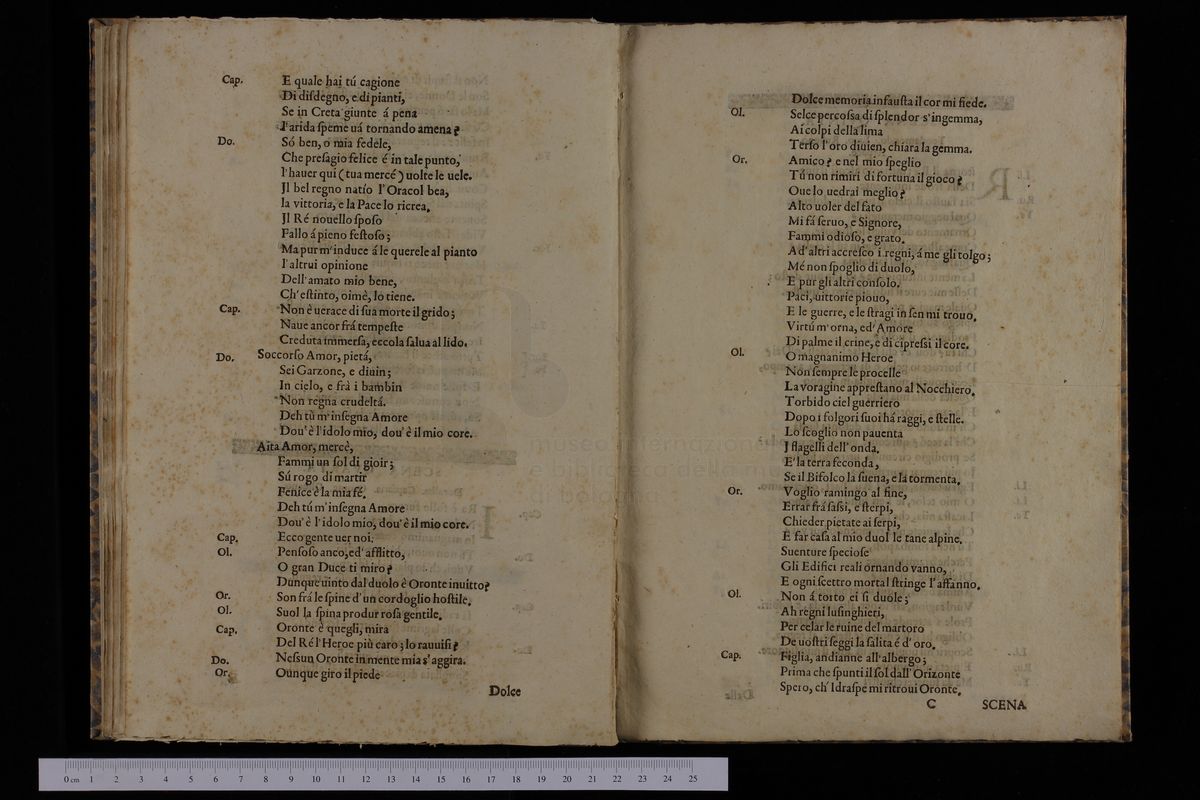 Cap. E quale hai tú cagione
Di diſdegno, e di pianti,
Se in Creta giunte á pena
l'arida ſpeme uá tornando amena?
Do. Só ben, o mia fedele,
Che preſagio felice é in tale punto,
l'hauer qui (tua mercé) uolte le uele.
Jl bel regno natío l'Oracol bea,
la vittoria, e la Pace lo ricrea.
Jl Ré nouello ſpoſo
Fallo á pieno feſtoſo;
Ma pur m'induce á le querele al pianto
l'altrui opinione
Dell'amato mio bene,
Ch'eſtinto, oimè, lo tiene.
Cap. Non è uerace di ſua morte il grido;
Naue ancor frá tempeſte
Creduta immerſa, eccola ſalua al lido.
Do. Soccorſo Amor, pietá,
Sei Garzone, e diuin;
In cielo, e frà i bambin
Non regna crudeltá.
Deh tù m'inſegna Amore
Dou'è l'idolo mio, dou'è il mio core.
Aita Amor, mercè,
Fammi un ſol di gioir;
Sú rogo di martir
Fenice è la mia fé.
Deh tú m'inſegna Amore
Dou'è l'idolo mio, dou'è il mio core.
Cap. Ecco gente uer noi.
Ol. Penſoſo anco, ed'afflitto,
O gran Duce ti miro?
Dunque uinto dal duolo è Oronte inuitto?
Or. Son frá le ſpine d'un cordoglio hoſtile.
Ol. Suol la ſpina produr roſa gentile.
Cap. Oronte è quegli, mira
Del Ré l'Heroe più caro; lo rauuiſi?
Do. Neſsun Oronte in mente mia s'aggira.
Or. Ounque giro il piede
Dolce
Dolce memoria infauſta il cor mi fiede.
Ol. Selce percoſsa di ſplendor s'ingemma,
Ai colpi della lima
Terſo l'oro diuien, chiara la gemma.
Or. Amico? e nel mio ſpeglio
Tú non rimiri di fortuna il gioco?
Oue lo uedrai meglio?
Alto uoler del fato
Mi fá ſeruo, e Signore,
Fammi odioſo, e grato.
Ad'altri accreſco i regni, á me gli tolgo;
Mé non ſpoglio di duolo,
E pur gli altri conſolo.
Paci, uittorie piouo,
E le guerre, e le ſtragi in ſen mi trouo.
Virtú m'orna, ed'Amore
Di palme il crine, e di cipreſsi il core.
Ol. O magnanimo Heroe
Non ſempre le procelle
La voragine appreſtano al Nocchiero.
Torbido ciel guerriero
Dopo i folgori ſuoi há raggi, e ſtelle.
Lo ſcoglio non pauenta
J flagelli dell'onda.
E' la terra feconda,
Se il Bifolco la ſuena, e la tormenta.
Or. Voglio ramingo al fine,
Errar frá ſaſsi, e ſterpi,
Chieder pietate ai ſerpi,
E far caſa al mio duol le tane alpine.
Suenture ſpecioſe
Gli Edifici reali ornando vanno,
E ogni ſcettro mortal ſtringe l'affanno.
Ol. Non á torto ei ſi duole;
Ah regni luſinghieri,
Per celar le ruine del martoro
De uoſtri ſeggi la ſalita é d'oro.
Cap. Figlia, andianne all'albergo;
Prima che ſpunti il ſol dall'Orizonte
Spero, ch'Idraſpe mi ritroui Oronte.
C SCENA
museo internazionale
e biblioteca della
di bologna
0 cm 1 2 3 4 5 6 7 8 9 10 11 12 13 14 15 16 17 18 19 20 21 22 23 24 25